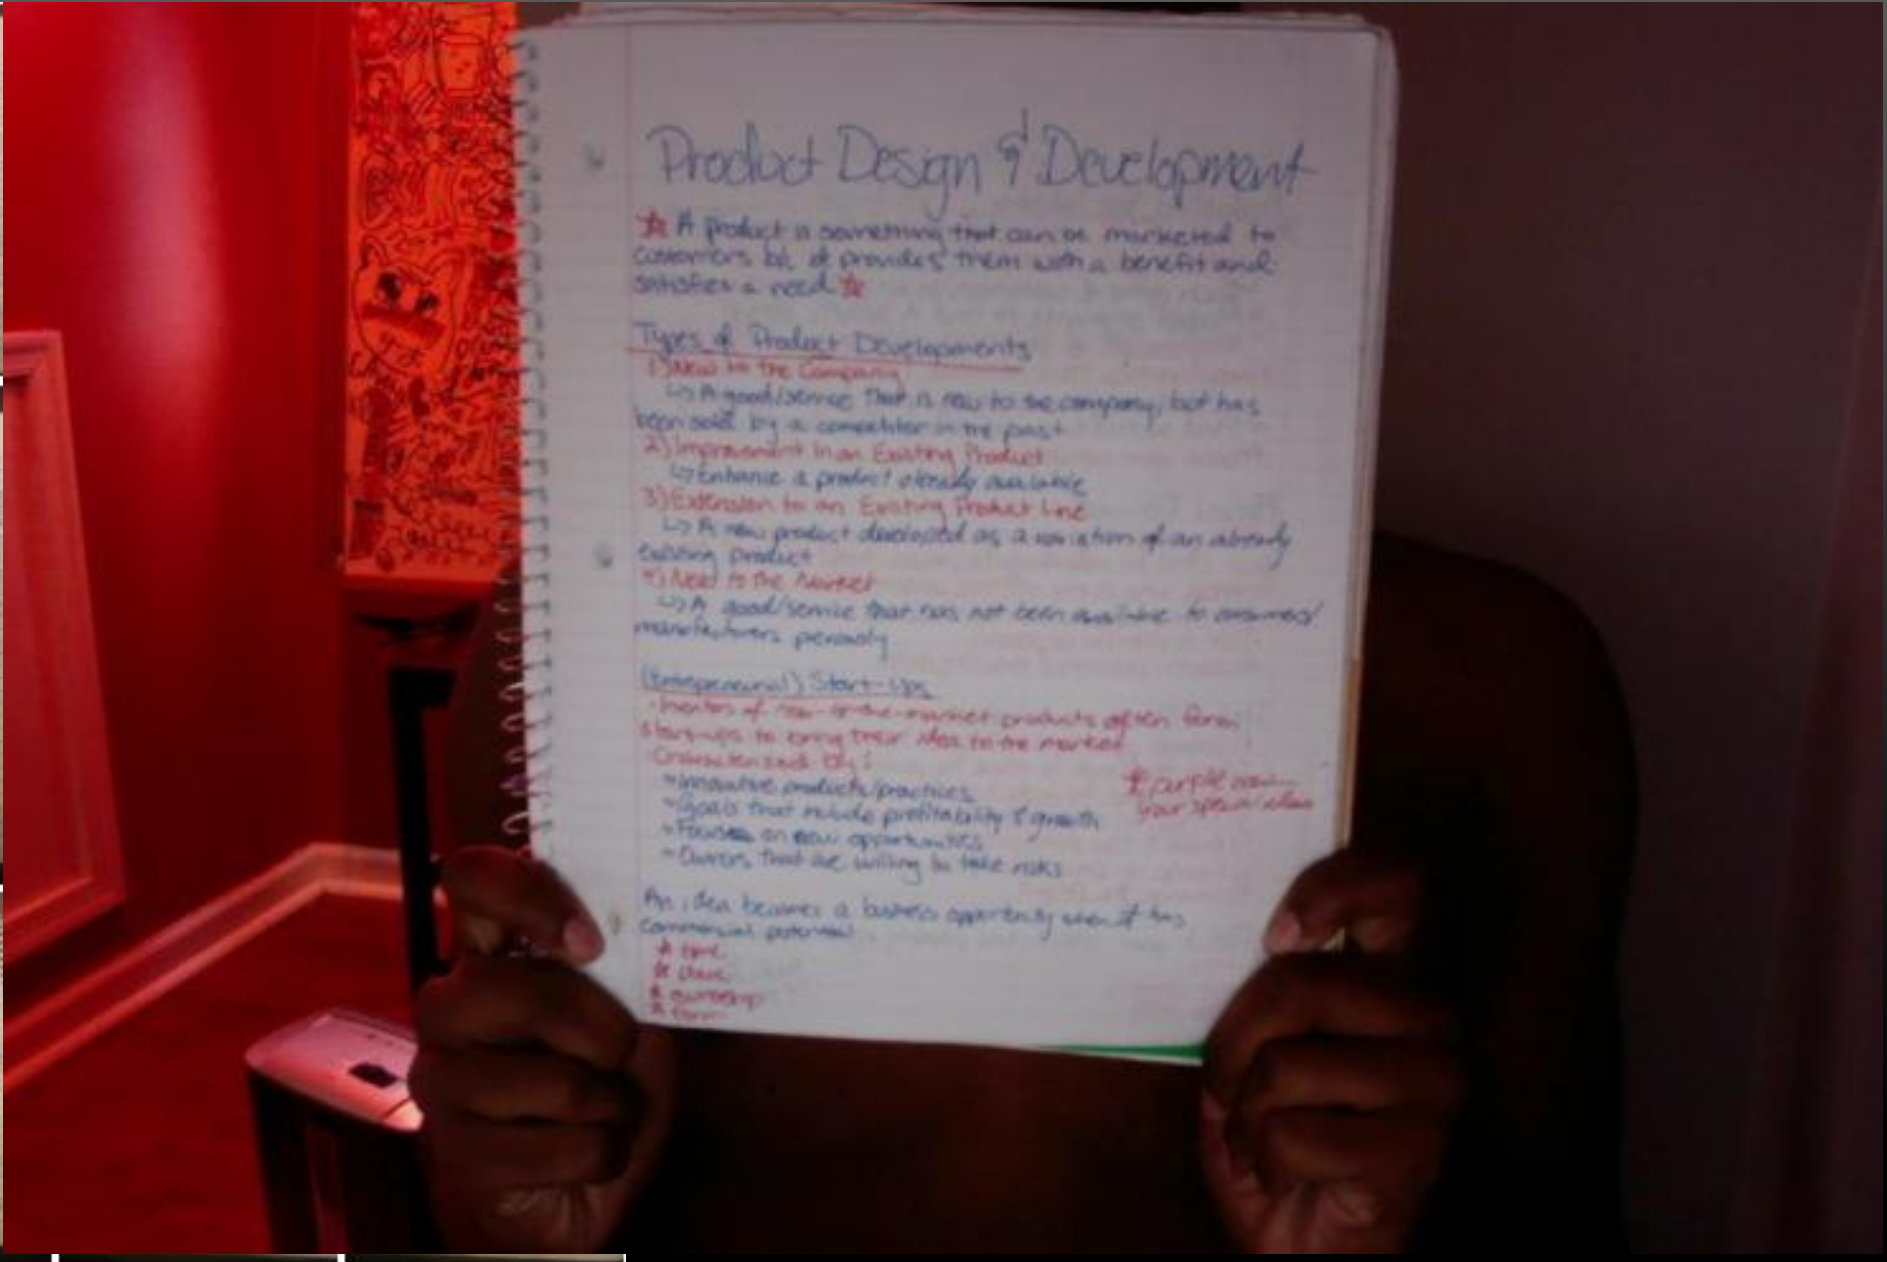 Product Design & Development
☆ A product is something that can be marketed to
customers b/c it provides them with a benefit and
satisfies a need ☆
Types of Product Developments
1) New to the Company
↳ A good/service that is new to the company, but has
been sold by a competitor in the past
2) Improvement in an Existing Product
↳ Enhance a product already available
3) Extension to an Existing Product Line
↳ A new product developed as a variation of an already
existing product
4) New to the Market
↳ A good/service that has not been available to consumers/
manufacturers
Start-Ups
of new-to-the-market products often form
start-ups to bring their idea to the market
by:
Innovative products/practices
Goals that include profitability & growth
on new opportunities
Owners that are willing to take risks
☆ purple
your special
An idea becomes a business opportunity when it has
commercial potential
☆ time
☆
☆ ownership
☆ form